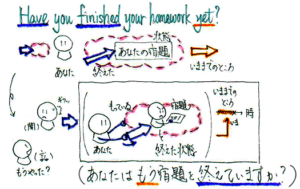 Have you finished your homework yet?
状態
あなたの宿題
あなた 終えた いままでのところ
もっている 宿題 いままでの
ところ
時
(聞) あなた 終えた状態
(話)
もうやった?
(あなたは もう宿題を終えていますか?)